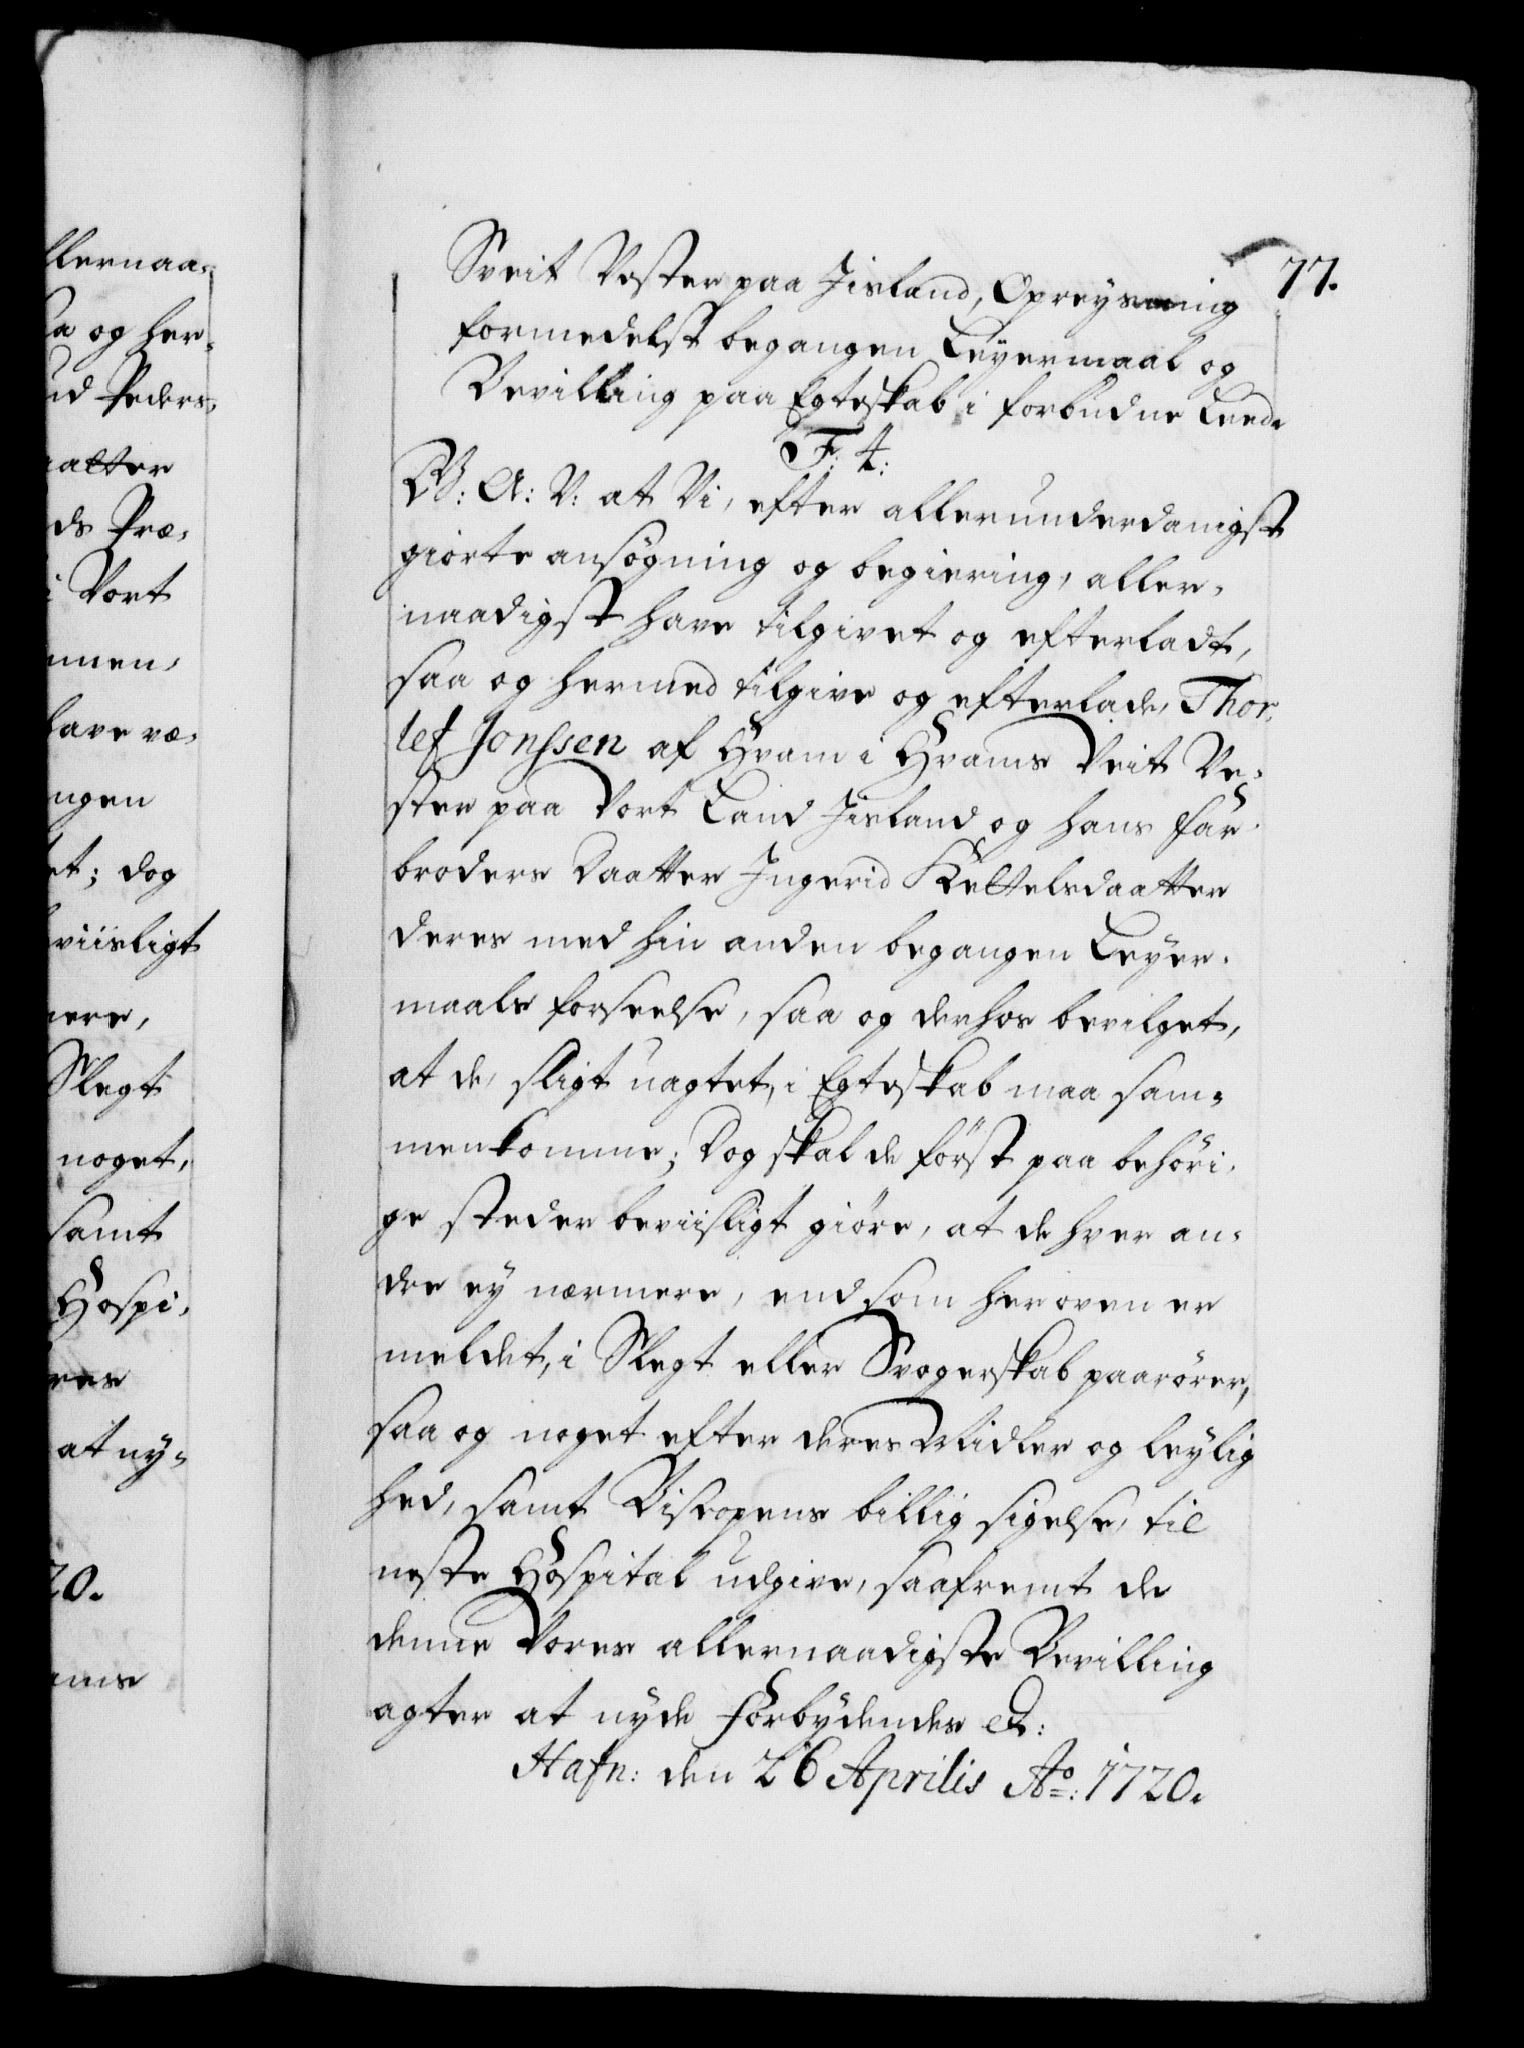 llernaa-
a og her-
ud Peders-
aatter
ds Præ-
i Vort
mmen-
have væ-
ngen
et; dog
viisligt
mere,
Slegt
noget,
samt
Hospi-
res
at ny-
20.
ams
77.
Sveit Vester paa Jisland, Opreysning
formedelst begangen Leyermaal og
Bevilling paa Egteskab i forbudne Leede
F: 4:
G: A: V: at Vi, efter allerunderdanigst
giorte ansögning og begiering, aller-
naadigst have tilgivet og efterladt,
saa og hermed tilgive og efterlade, Thor-
lef Jonssen af Hvam i Hvams Veit Ve-
ster paa Vort Land Jisland og hans far-
broders Daatter Ingerid Kettelsdaatter
deres med hin anden begangen Leyer-
maals forseelse, saa og derhos bevilget,
at de, sligt uagtet, i Egteskab maa sam-
menkomme; Dog skal de först paa behöri-
ge steder beviisligt giöre, at de hver an-
dre ey nærmere, end som her oven er
meldet, i Slegt eller Svogerskab paarörer,
saa og noget efter deres Midler og leylig
hed, samt Biscopens billig sigelse, til
neste Hospital udgive, saafremt de
denne Vores allernaadigste Bevilling
agter at nyde Forbydendes etc:
Hafn: den 26 Aprilis Ao: 1720.